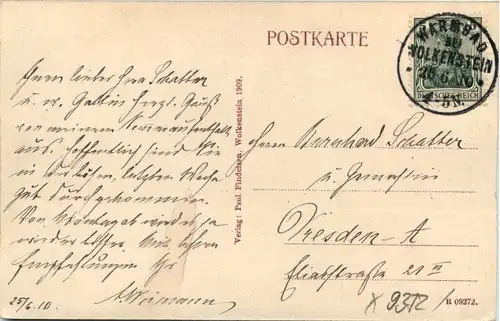 POSTKARTE
WARMBAD
BEI
WOLKENSTEIN
26.6.10
5-6N.
DEUTSCHES REICH
Mein lieber Herr Schatter
u. w. Gattin herzl. Gruß
von meinem Sommeraufenthalt
aus. Hoffentlich sind Sie
in der letzten Woche
gut durchgekommen.
Von Montag ab wird es ja
wieder besser. Mit
Empfehlungen Ihr
25/6.10
Verlag: Paul Findeisen, Wolkenstein 1909.
Herrn Bernhard Schatter
u. Gemahlin
Dresden-A
Eliasstraße 21 II
X 9372
B 09272.